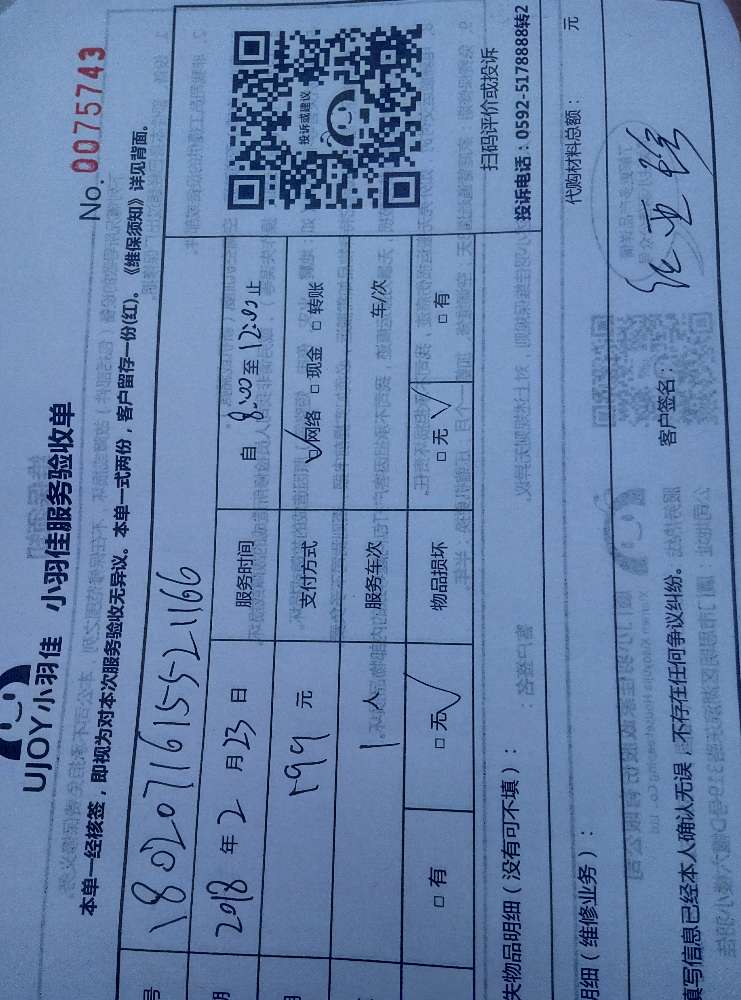 No. 0075743
UJOY小羽佳 小羽佳服务验收单
本单一经核签，即视为对本次服务验收无异议。本单一式两份，客户留存一份(红)。《维保须知》详见背面。
号 1802071615521166
期 2018 年 2 月 23 日 服务时间 自 8:00 至 12:00 止
199 元 支付方式 ☑网络 □现金 □转账
1 人 服务车次 车/次
□有 □无 ✓ 物品损坏 □无 ✓ □有
投诉或建议
扫码评价或投诉
投诉电话：0592-5178888转2
失物品明细（没有可不填）：
明细（维修业务）： 代购材料总额： 元
填写信息已经本人确认无误，不存在任何争议纠纷。 客户签名：